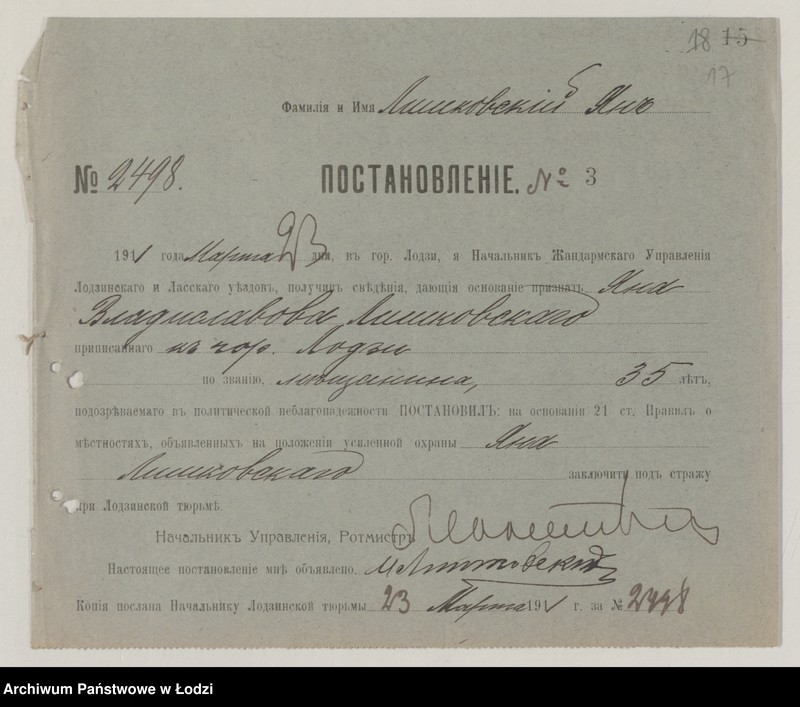 18 15
17
Фамилія и Имя Лишковскій Янъ
№ 2498. ПОСТАНОВЛЕНІЕ. № 3
1911 года Марта 23 дня, въ гор. Лодзи, я Начальникъ Жандармскаго Управленія
Лодзинскаго и Ласскаго уѣздовъ, получивъ свѣдѣнія, дающія основаніе признать Яна
Владиславова Лишковскаго
приписаннаго къ гор. Лодзи
по званію, мѣщанина, 35 лѣтъ,
подозрѣваемаго въ политической неблагонадежности ПОСТАНОВИЛЪ: на основаніи 21 ст. Правилъ о
мѣстностяхъ, объявленныхъ на положеніи усиленной охраны Яна
Лишковскаго заключить подъ стражу
при Лодзинской тюрьмѣ.
Начальникъ Управленія, Ротмистръ
Настоящее постановленіе мнѣ объявлено.
Копія послана Начальнику Лодзинской тюрьмы 23 Марта 1911 г. за № 2498
Archiwum Państwowe w Łodzi